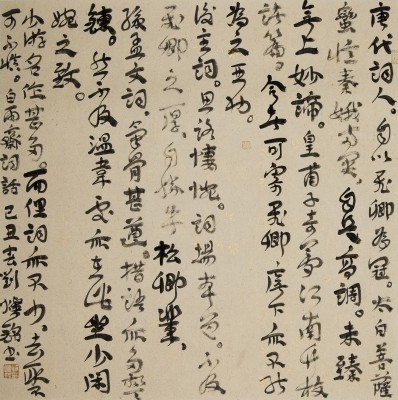 唐代詞人。自以飛卿為冠。太白菩薩
蠻憶秦娥兩闋。自是高調。未臻
無上妙諦。皇甫子奇夢江南竹枝
諸篇。合者可寄飛卿廡下亦不能
為之亞也。
後主詞。思路悽惋。詞場本色。不及
飛卿之厚。自勝牛松卿輩。
孫孟文詞。氣骨甚遒。措語亦多警
鍊。然不及溫韋處亦在此坐少閑
婉之致。
少游名作甚多。而俚詞亦不少。去取不
可不慎。白雨齋詞話 己丑春劉燦銘書